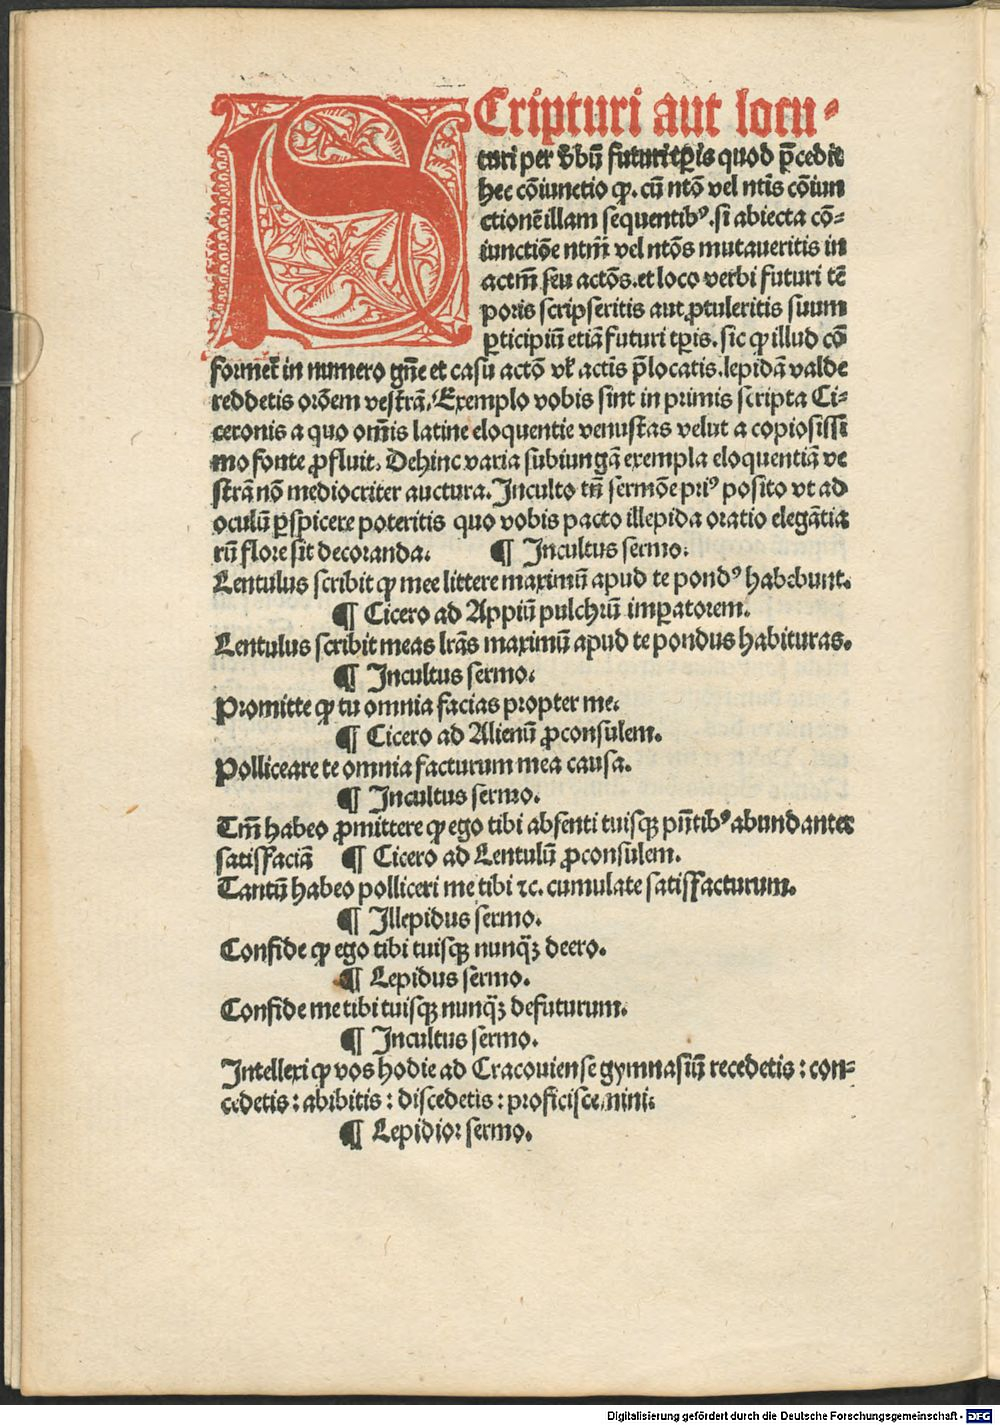 SCripturi aut locu⸗
turi per v̄bū futuri tp̄is quod p̄cedit
hec cōiunctio ꝙ. cū ntō vel ntīs cōiun
ctionē illam sequentibꝰ. si abiecta cō⸗
iunctiōe ntm̄ vel ntōs mutaueritis in
actm̄ seu actōs. et loco verbi futuri tē
poris scripseritis aut ꝓtuleritis suum
ꝑticipiū etiā futuri tꝑis. sic ꝙ illud cō
formet᷑ in numero gn̄e et casu actō vł actis p̄locatis. lepidā valde
reddetis orōem vestrā. Exemplo vobis sint in primis scripta Ci⸗
ceronis a quo om̄is latine eloquentie venustas velut a copiosissi
mo fonte ꝓfluit. Dehinc varia subiungā exempla eloquentiā ve
strā nō mediocriter auctura. Inculto tn̄ sermōe priꝰ posito vt ad
oculū ꝑspicere poteritis quo vobis pacto illepida oratio elegātia
rū flore sit decoranda. ¶ Incultus sermo.
Lentulus scribit ꝙ mee littere maximū apud te pondꝰ habebunt.
¶ Cicero ad Appiū pulchrū imꝑatorem.
Lentulus scribit meas lrās maximū apud te pondus habituras.
¶ Incultus sermo.
Promitte ꝙ tu omnia facias propter me.
¶ Cicero ad Alienū ꝓconsulem.
Polliceare te omnia facturum mea causa.
¶ Incultus sermo.
Tm̄ habeo ꝓmittere ꝙ ego tibi absenti tuisqꝫ pn̄tibꝰ abundanter
satisfaciā ¶ Cicero ad Lentulū ꝓconsulem.
Tantū habeo polliceri me tibi ⁊c. cumulate satisfacturum.
¶ Illepidus sermo.
Confide ꝙ ego tibi tuisqꝫ nunq̄ꝫ deero.
¶ Lepidus sermo.
Confide me tibi tuisqꝫ nunq̄ꝫ defuturum.
¶ Incultus sermo.
Intellexi ꝙ vos hodie ad Cracouiense gymnasiū recedetis : con⸗
cedetis : abibitis : discedetis : proficiscemini.
¶ Lepidior sermo.
Digitalisierung gefördert durch die Deutsche Forschungsgemeinschaft - DFG